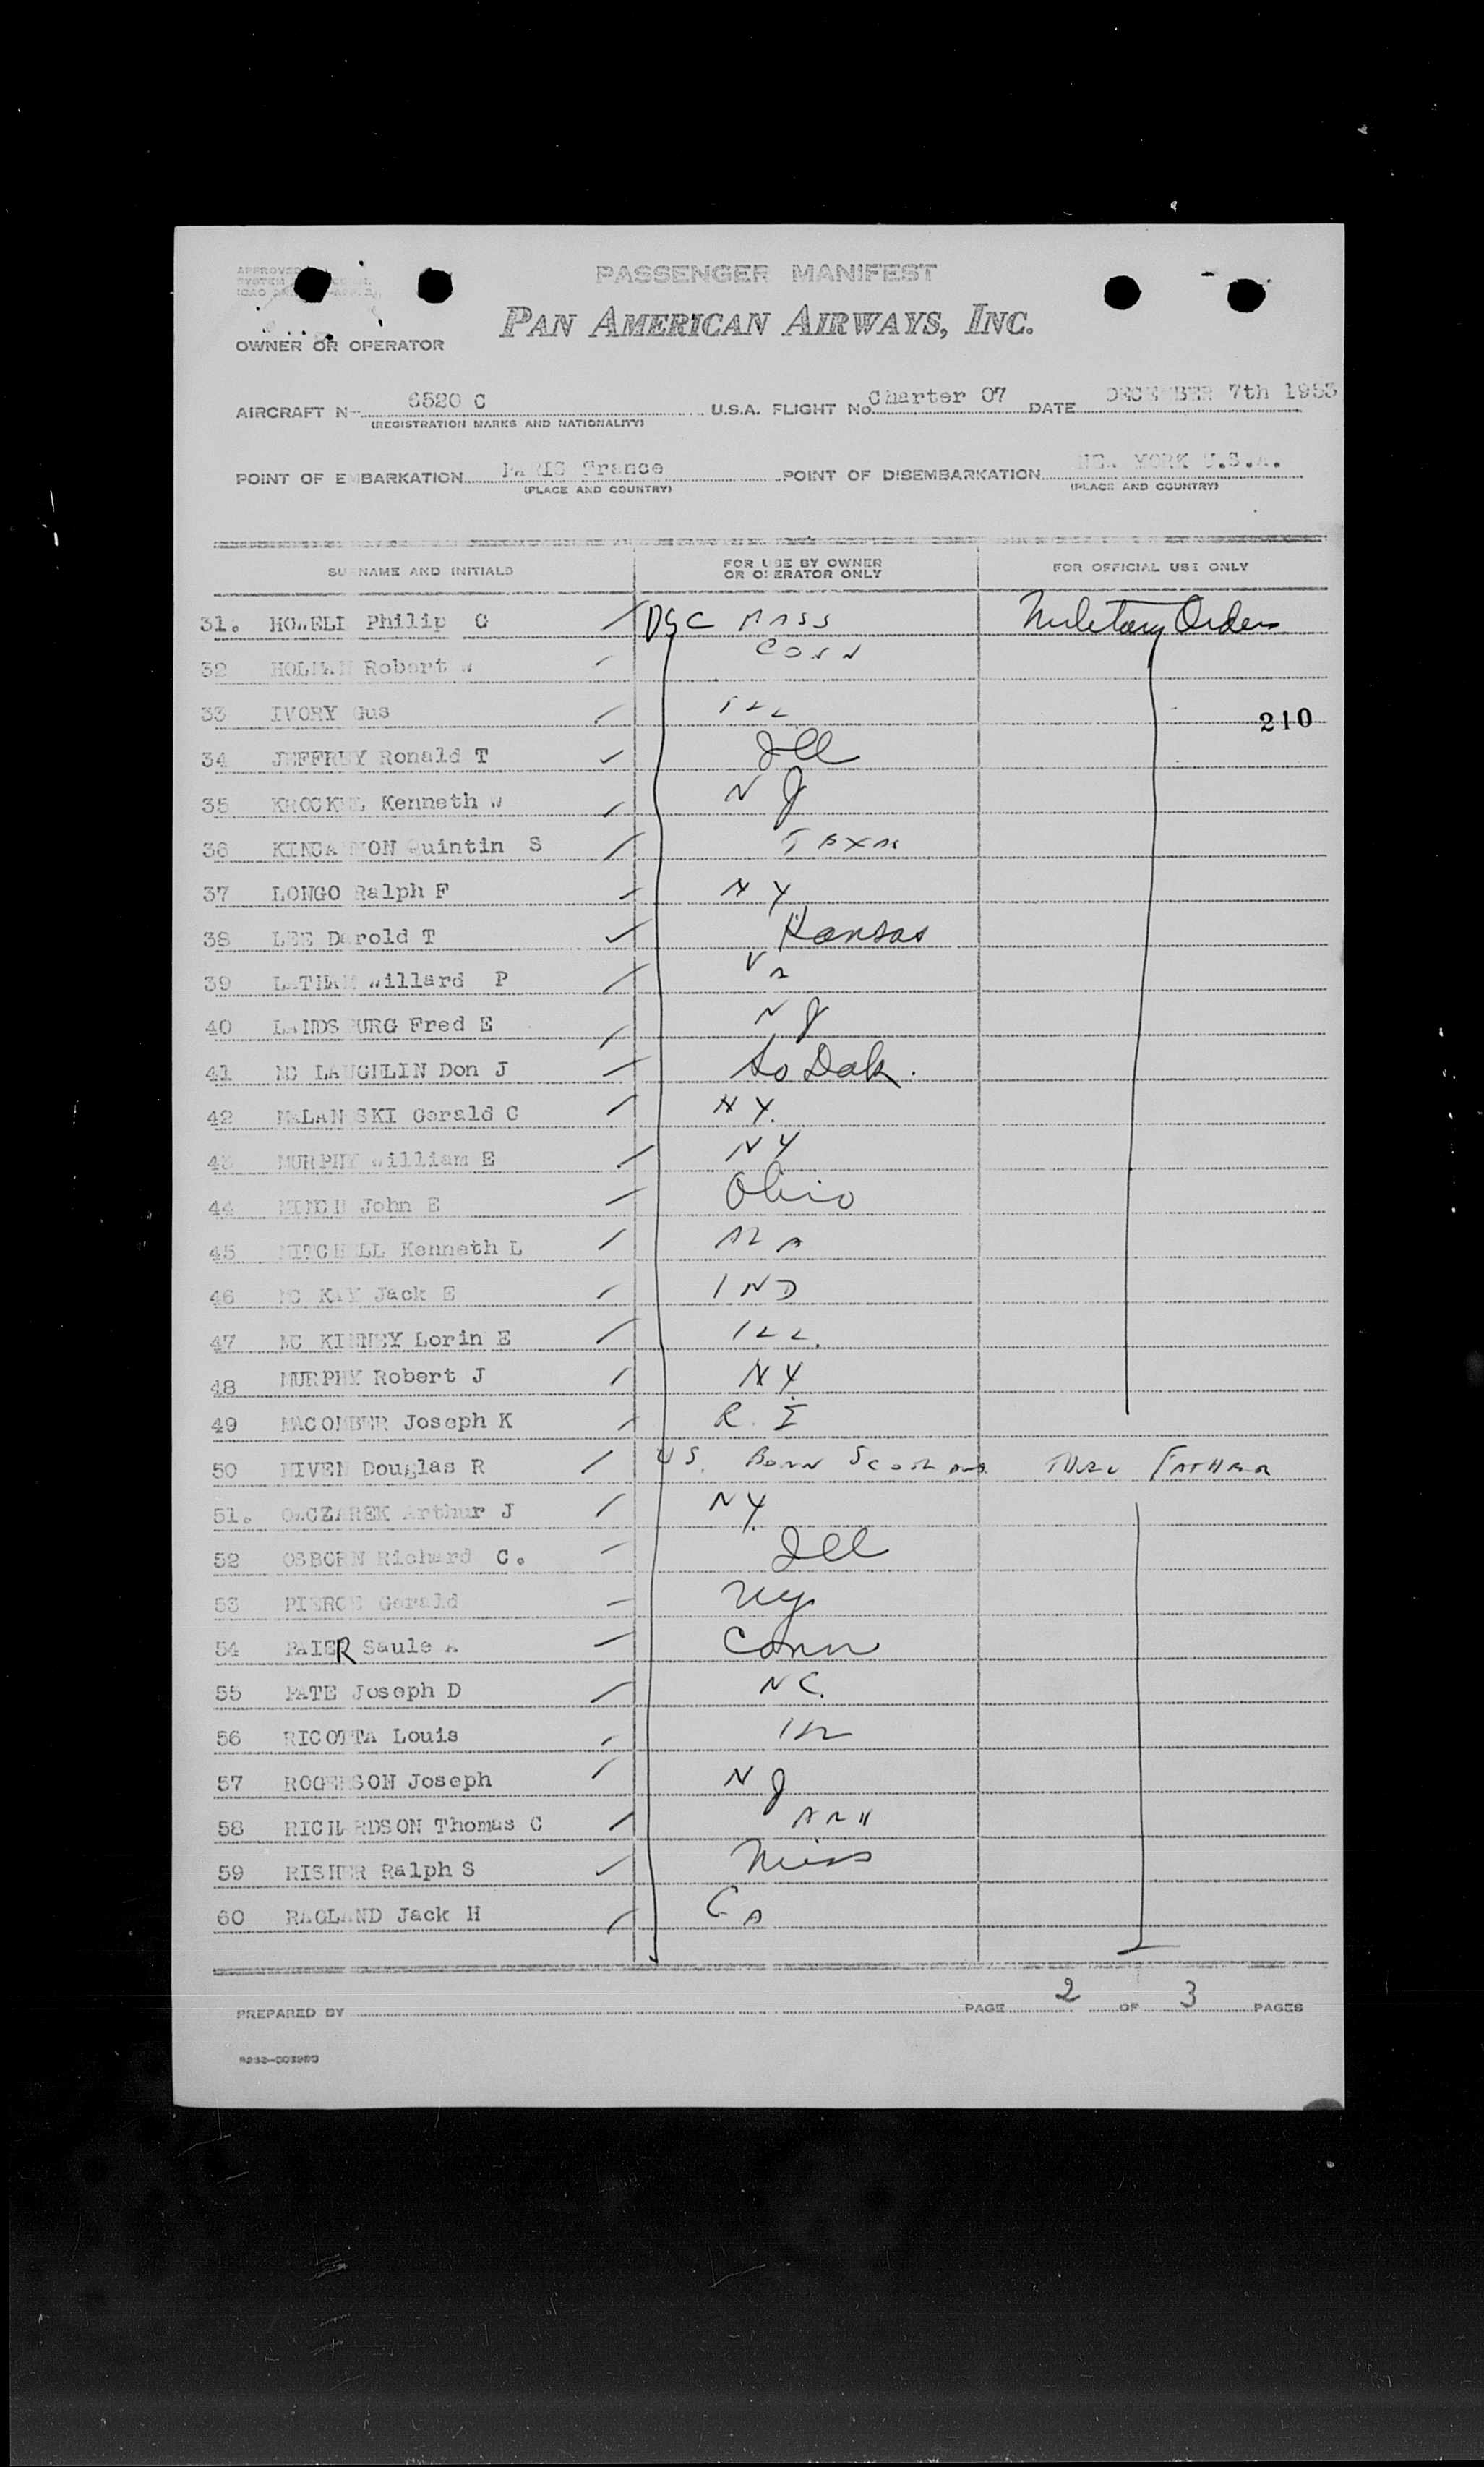 PASSENGER MANIFEST
PAN AMERICAN AIRWAYS, INC.
OWNER OR OPERATOR
AIRCRAFT N 6520 C U.S.A. FLIGHT No. Charter 07 DATE DECEMBER 7th 1953
(REGISTRATION MARKS AND NATIONALITY)
POINT OF EMBARKATION PARIS France POINT OF DISEMBARKATION NEW YORK U.S.A.
(PLACE AND COUNTRY) (PLACE AND COUNTRY)
SURNAME AND INITIALS FOR USE BY OWNER OR OPERATOR ONLY FOR OFFICIAL USE ONLY
31. HOWELL Philip G MASS Military Orders
32 HOLMAN Robert W CONN
33 IVORY Gus ILL 210
34 JEFFREY Ronald T Ill
35 Kenneth W NJ
36 KINCANNON Quintin S TEXAS
37 LONGO Ralph F NY
38 LEE Darold T Kansas
39 LATHAM Willard P Va
40 LANDSBURG Fred E NJ
41 MC LAUGHLIN Don J So Dak.
42 Gerald C NY.
43 MURPHY William E NY
44 John E Ohio
45 MITCHELL Kenneth L ALA
46 MC KAY Jack E IND
47 MC KINNEY Lorin E ILL.
48 MURPHY Robert J NY
49 MACOMBER Joseph K R.I
50 NIVEN Douglas R US. BORN SCOTLAND THRU FATHER
51. OWCZAREK Arthur J NY.
52 OSBORN Richard C. Ill
53 PIERCE Gerald NY
54 PAIER Saule A Conn
55 PATE Joseph D NC.
56 RICOTTA Louis ILL
57 ROGERSON Joseph NJ
58 RICHARDSON Thomas C ARK
59 RISHER Ralph S Miss
60 RAGLAND Jack H GA
PREPARED BY PAGE 2 OF 3 PAGES